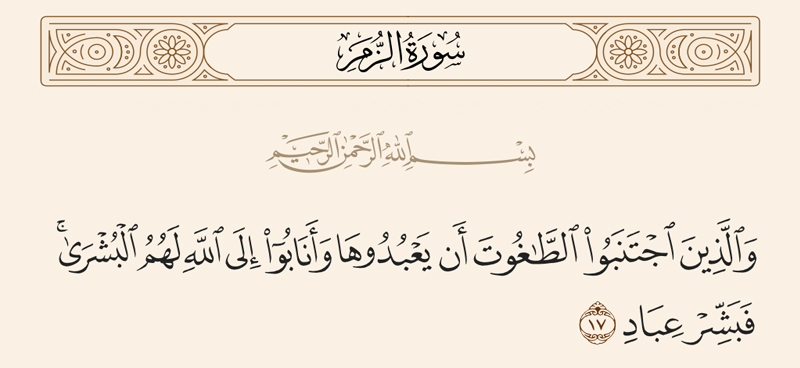 سُورَةُ الزُّمَرِ
بِسْمِ ٱللَّهِ ٱلرَّحْمَٰنِ ٱلرَّحِيمِ
وَٱلَّذِينَ ٱجْتَنَبُوا۟ ٱلطَّٰغُوتَ أَن يَعْبُدُوهَا وَأَنَابُوٓا۟ إِلَى ٱللَّهِ لَهُمُ ٱلْبُشْرَىٰ ۚ
فَبَشِّرْ عِبَادِ ١٧